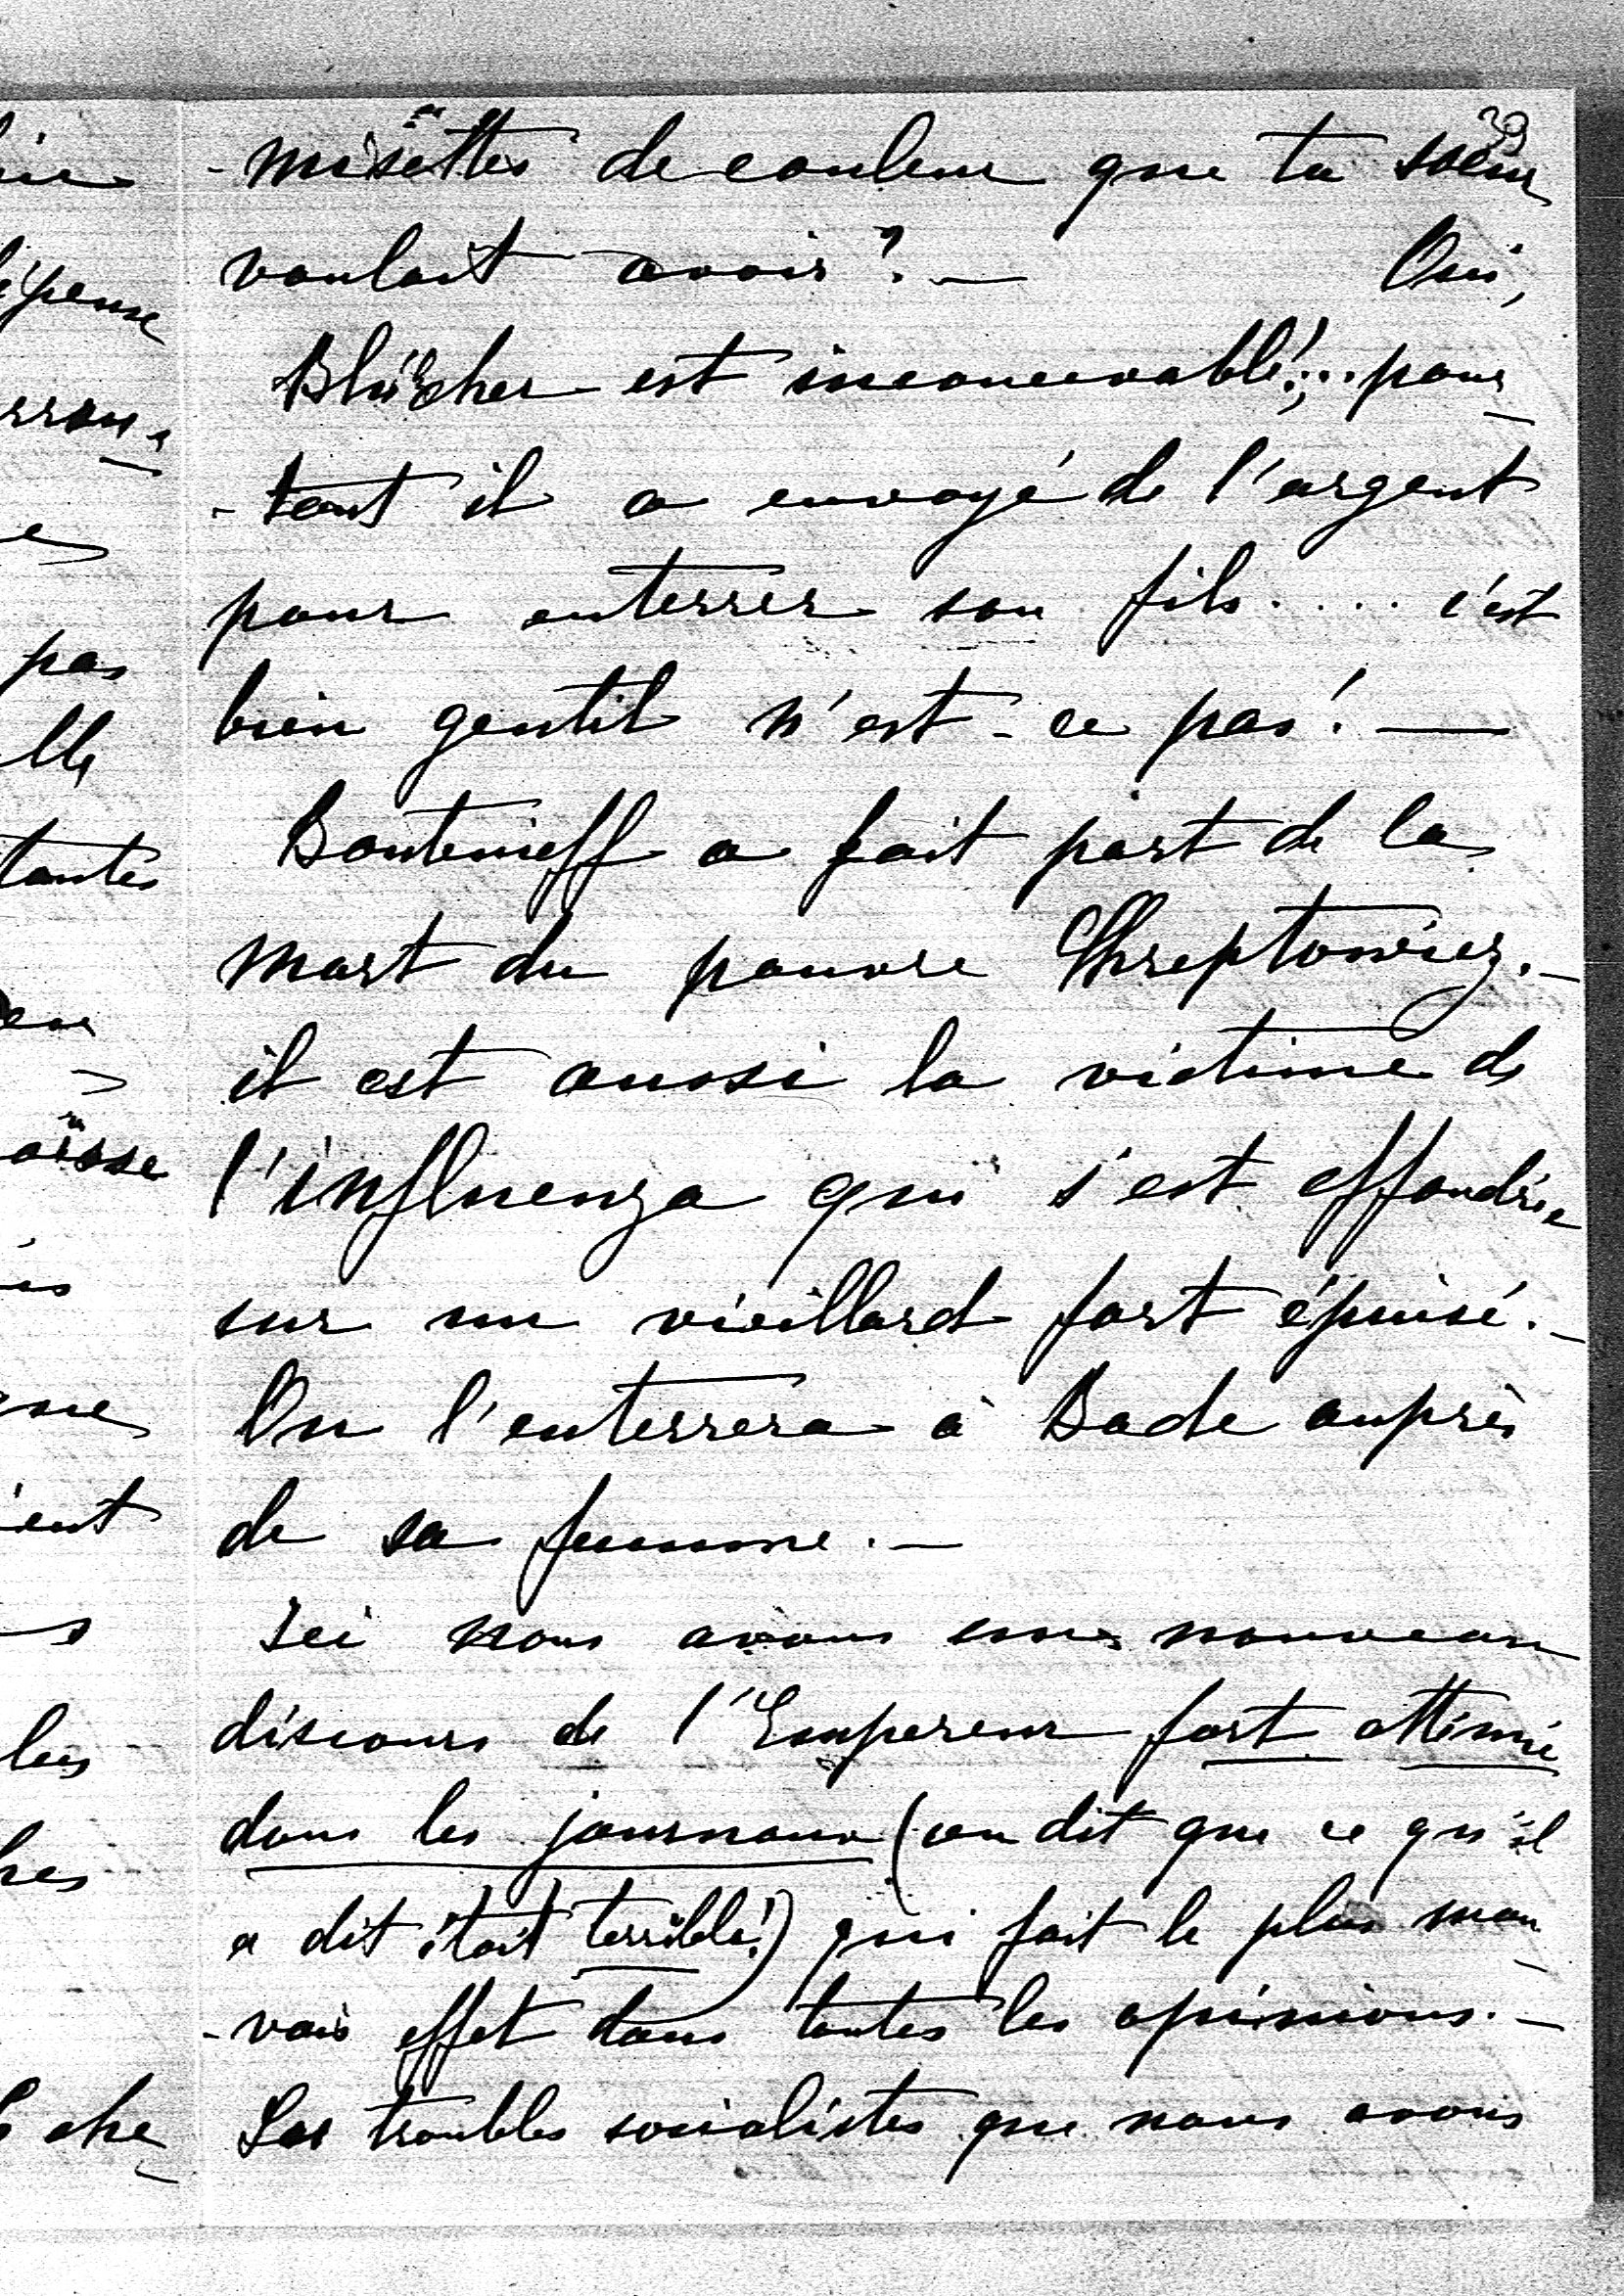 39
-misettes de couleur que ta soeur
voulait avoir? — Oui,
Blücher est inconcevable!... pour-
-tant il a envoyé de l'argent
pour enterrer son fils.... c'est
bien gentil n'est-ce pas! —
Boutenieff a fait part de la
mort du pauvre Chreptowicz. —
il est aussi la victime de
l'influenza qui s'est effondrée
sur un vieillard fort épuisé. —
On l'enterrera à Bade auprès
de sa femme. —
Ici nous avons eu nouveau
discours de l'Empereur fort atténué
dans les journaux (on dit que ce qu'il
a dit était terrible!) qui fait le plus mau-
-vais effet dans toutes les opinions. —
Les troubles socialistes que nous avons
pas
elle
tantes
oisse
ient
les
che-